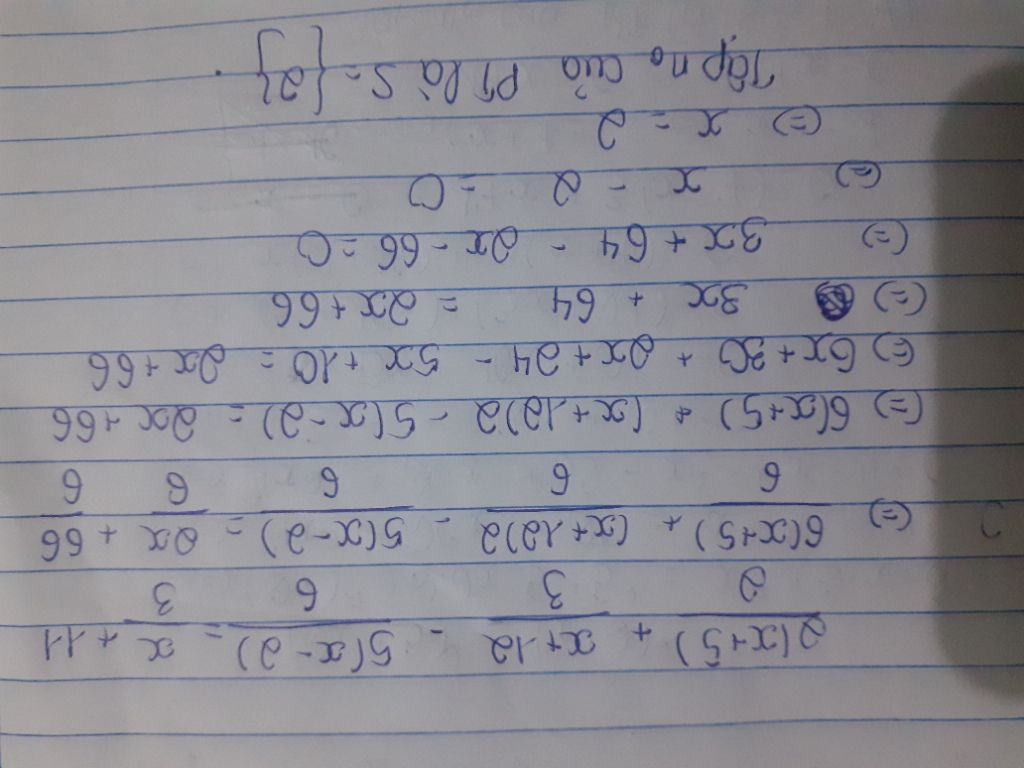 2(x+5)/2 + x+12/3 - 5(x-2)/6 = x/3 + 11
(=) 6(x+5)/6 + (x+12)2/6 - 5(x-2)/6 = 2x/6 + 66/6
(=) 6(x+5) + (x+12)2 - 5(x-2) = 2x+66
(=) 6x+30 + 2x+24 - 5x+10 = 2x+66
(=) 3x + 64 = 2x+66
(=) 3x+64 - 2x-66=0
(=) x - 2 = 0
(=) x = 2
Tập no của PT là S={2}